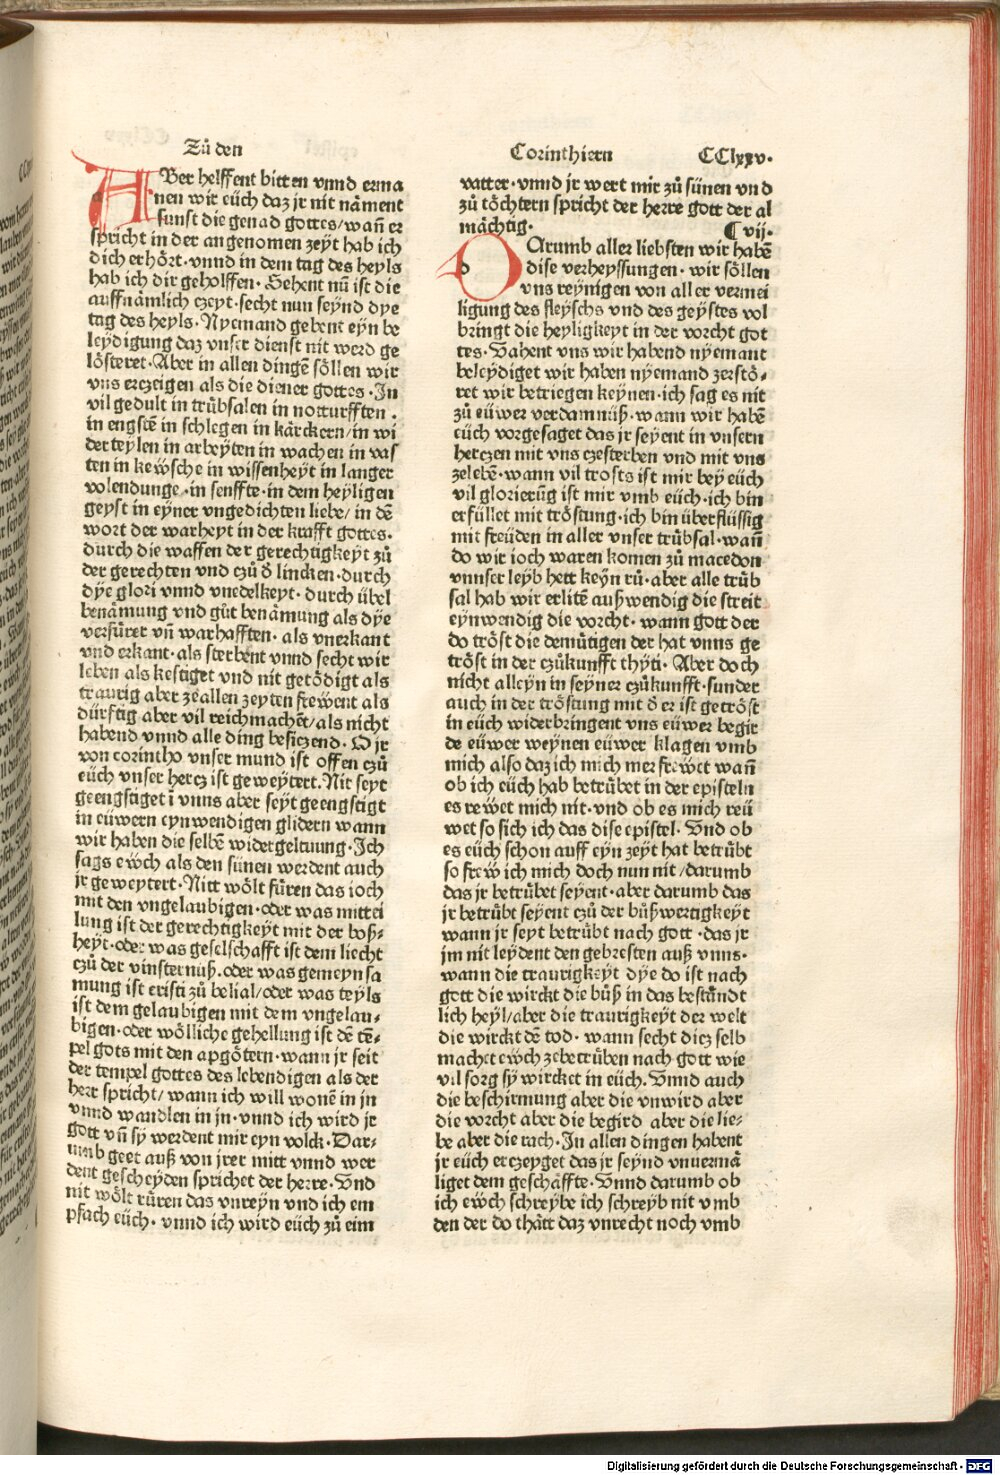 Zů den
Corinthiern CClxxv·
ABer helffent bitten vnnd erma
nen wir eüch daz jr nit näment
sunst die genad gottes/wañ er
spricht in der angenomen zeyt hab ich
dich erhört·vnnd in dem tag des heyls
hab ich dir geholffen·Sehent nũ ist die
auffnämlich czeyt·secht nun seynd dye
tag des heyls·Nyemand gebent eyn be
leydigung daz vnser dienst nit werd ge
lösteret·Aber in allen dingẽ söllen wir
vns erczeigen als die diener gottes·In
vil gedult in trübsalen in notturfften·
in engstẽ in schlegen in kärckern/in wi
derteylen in arbeyten in wachen in vas
ten in kewsche in wissenheyt in langer
volendunge·in senffte·in dem heyligen
geyst in eyner vngedichten liebe/in dẽ
wort der warheyt in der krafft gottes·
durch die waffen der gerechtigkeyt zů
der gerechten vnd czů d̕ lincken·durch
dye glori vnnd vnedelkeyt·durch übel
benämung vnd gůt benämung als dye
verfürer vñ warhafften·als vnerkant
vnd erkant·als sterbent vnnd secht wir
leben als kestiget vnd nit getödigt als
traurig aber zeallen zeyten frewent als
dürftig aber vil reichmachẽt/als nicht
habend vnnd alle ding besiczend·O jr
von corintho vnser mund ist offen czů
eüch vnser hercz ist geweytert·Nit seyt
geengstiget ĩ vnns aber seyt geengstigt
in eüwern eynwendigen glidern wann
wir haben die selbẽ widergeltung·Ich
sags ewch als den sünen werdent auch
jr geweytert·Nitt wölt füren das ioch
mit den vngelaubigen·oder was mittei
lung ist der gerechtigkeyt mit der boß⸗
heyt·oder was geselschafft ist dem liecht
czů der vinsternuß·oder was gemeynsa
mung ist cristi zů belial/oder was teyls
ist dem gelaubigen mit dem vngelau⸗
bigen·oder wölliche gehellung ist dẽ tẽ⸗
pel gots mit den apgötern·wann jr seit
der tempel gottes des lebendigen als der
herr spricht/wann ich will wonẽ in jn
vnnd wandlen in jn·vnnd ich wird jr
gott vñ sy werdent mir eyn volck·Dar⸗
umb geet auß von jrer mitt vnnd wer
dent gescheyden sprichet der herre·Vnd
nit wölt rüren das vnreyn vnd ich em
pfach eüch·vnnd ich wird eüch zů eim
vatter·vnnd jr wert mir zů sünen vnd
zů töchtern spricht der herre gott der al
mächtig· ¶ vij·
DArumb aller liebsten wir habẽ
dise verheyssungen·wir söllen
vns reynigen von aller vermei
ligung des fleyschs vnd des geystes vol
bringt die heyligkeyt in der vorcht got
tes·Vahent vns wir habend nyemant
beleydiget wir haben nyemand zerstö⸗
ret wir betriegen keynen·ich sag es nit
zů eüwer verdamnüß·wann wir habẽ
eüch vorgesaget das jr seyent in vnsern
herczen mit vns czesterben vnd mit vns
zelebẽ·wann vil trosts ist mir bey eüch
vil glorierũg ist mir vmb eüch·ich bin
erfüllet mit tröstung·ich bin überflüssig
mit freüden in aller vnser trübsal·wañ
do wir ioch waren komen zů macedon
vnnser leyb hett keyn rů·aber alle trüb
sal hab wir erlitẽ außwendig die streit
eynwendig die vorcht·wann gott der
do tröst die demütigen der hat vnns ge
tröst in der czůkunfft thyti·Aber doch
nicht alleyn in seyner czůkunfft·sunder
auch in der tröstung mit d̕ er ist getröst
in eüch widerbringent vns eüwer begir
de eüwer weynen eüwer klagen vmb
mich also daz ich mich mer frewet wañ
ob ich eüch hab betrübet in der episteln
es rewet mich nit·vnd ob es mich reü
wet so sich ich das dise epistel·Vnd ob
es eüch schon auff eyn zeyt hat betrübt
so frew ich mich doch nun nit/darumb
das jr betrübet seyent·aber darumb das
jr betrübt seyent czů der büßwertigkeyt
wann jr seyt betrübt nach gott·das jr
jm nit leydent den gebresten auß vnns·
wann die traurigkeyt dye do ist nach
gott die wirckt die büß in das beständt
lich heyl/aber die traurigkeyt der welt
die wirckt dẽ tod·wann secht diez selb
machet ewch zebetrüben nach gott wie
vil sorg sy wircket in eüch·Vnnd auch
die beschirmung aber die vnwird aber
die vorcht aber die begird aber die lie⸗
be aber die rach·In allen dingen habent
jr eüch erczeyget das jr seynd vnuermä
liget dem geschäffte·Vnnd darumb ob
ich ewch schreybe ich schreyb nit vmb
den der do thätt daz vnrecht noch vmb
Digitalisierung gefördert durch die Deutsche Forschungsgemeinschaft · DFG